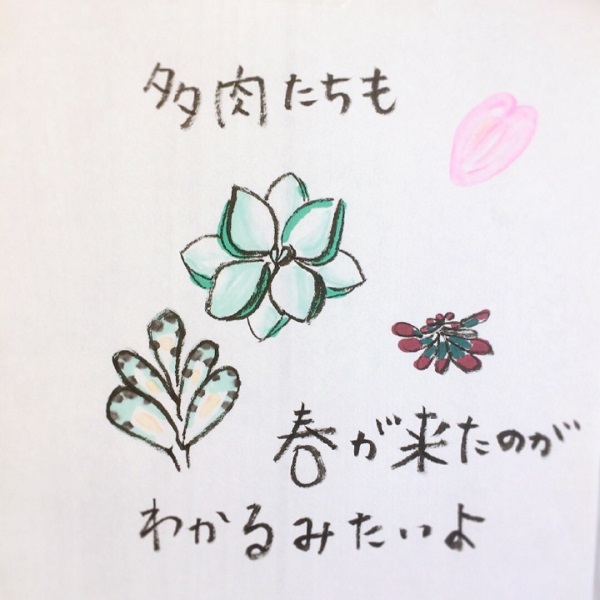 多肉たちも
春が来たのが
わかるみたいよ